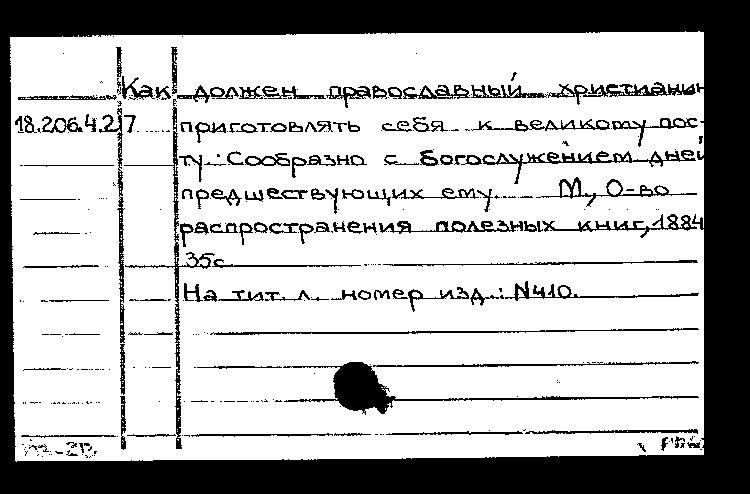 Как должен православный христианин
18.206.4.217 приготовлять себя к великому пос-
ту.: Сообразно с богослужением дней
предшествующих ему. М., О-во
распространения полезных книг, 1884
35с
На тит. л. номер изд.: N410.